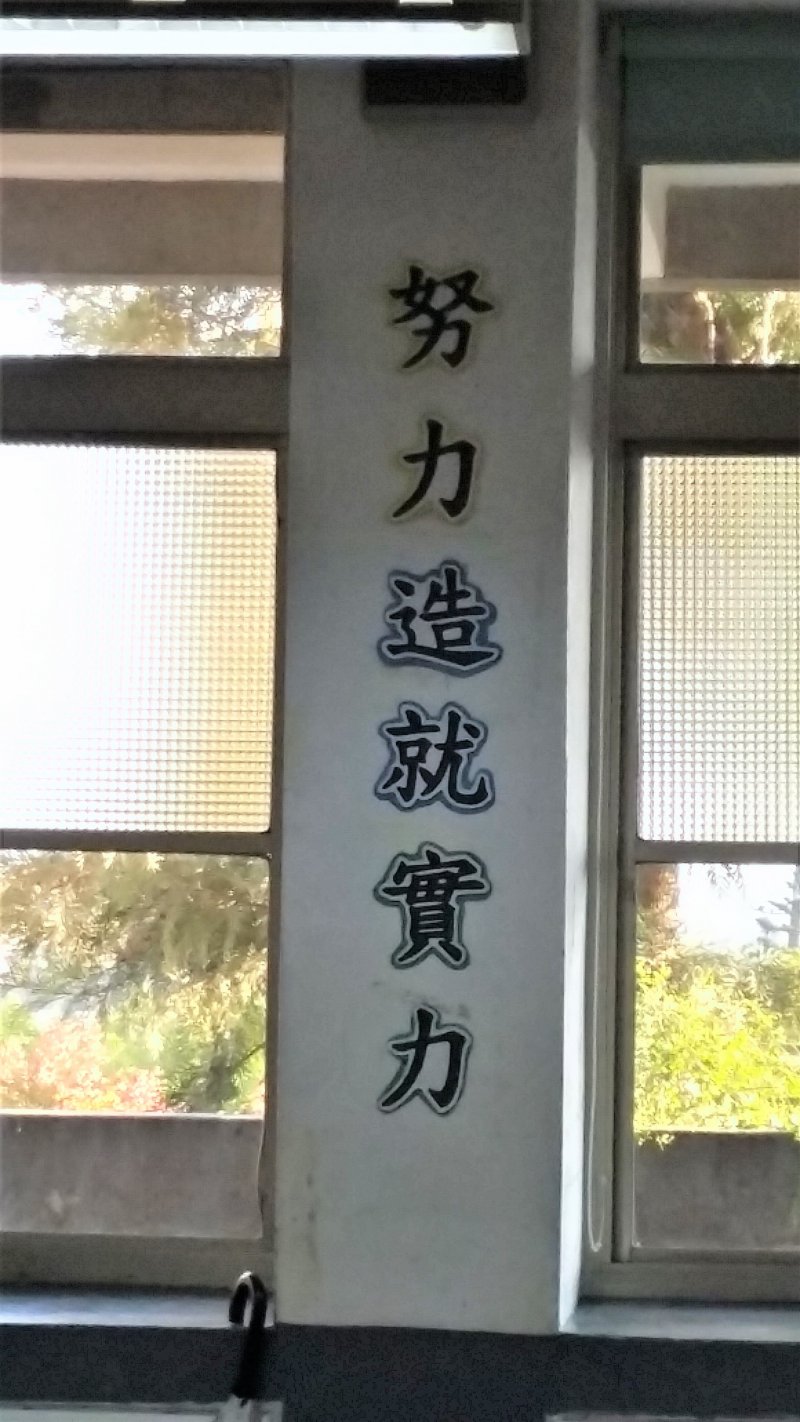 努力造就實力